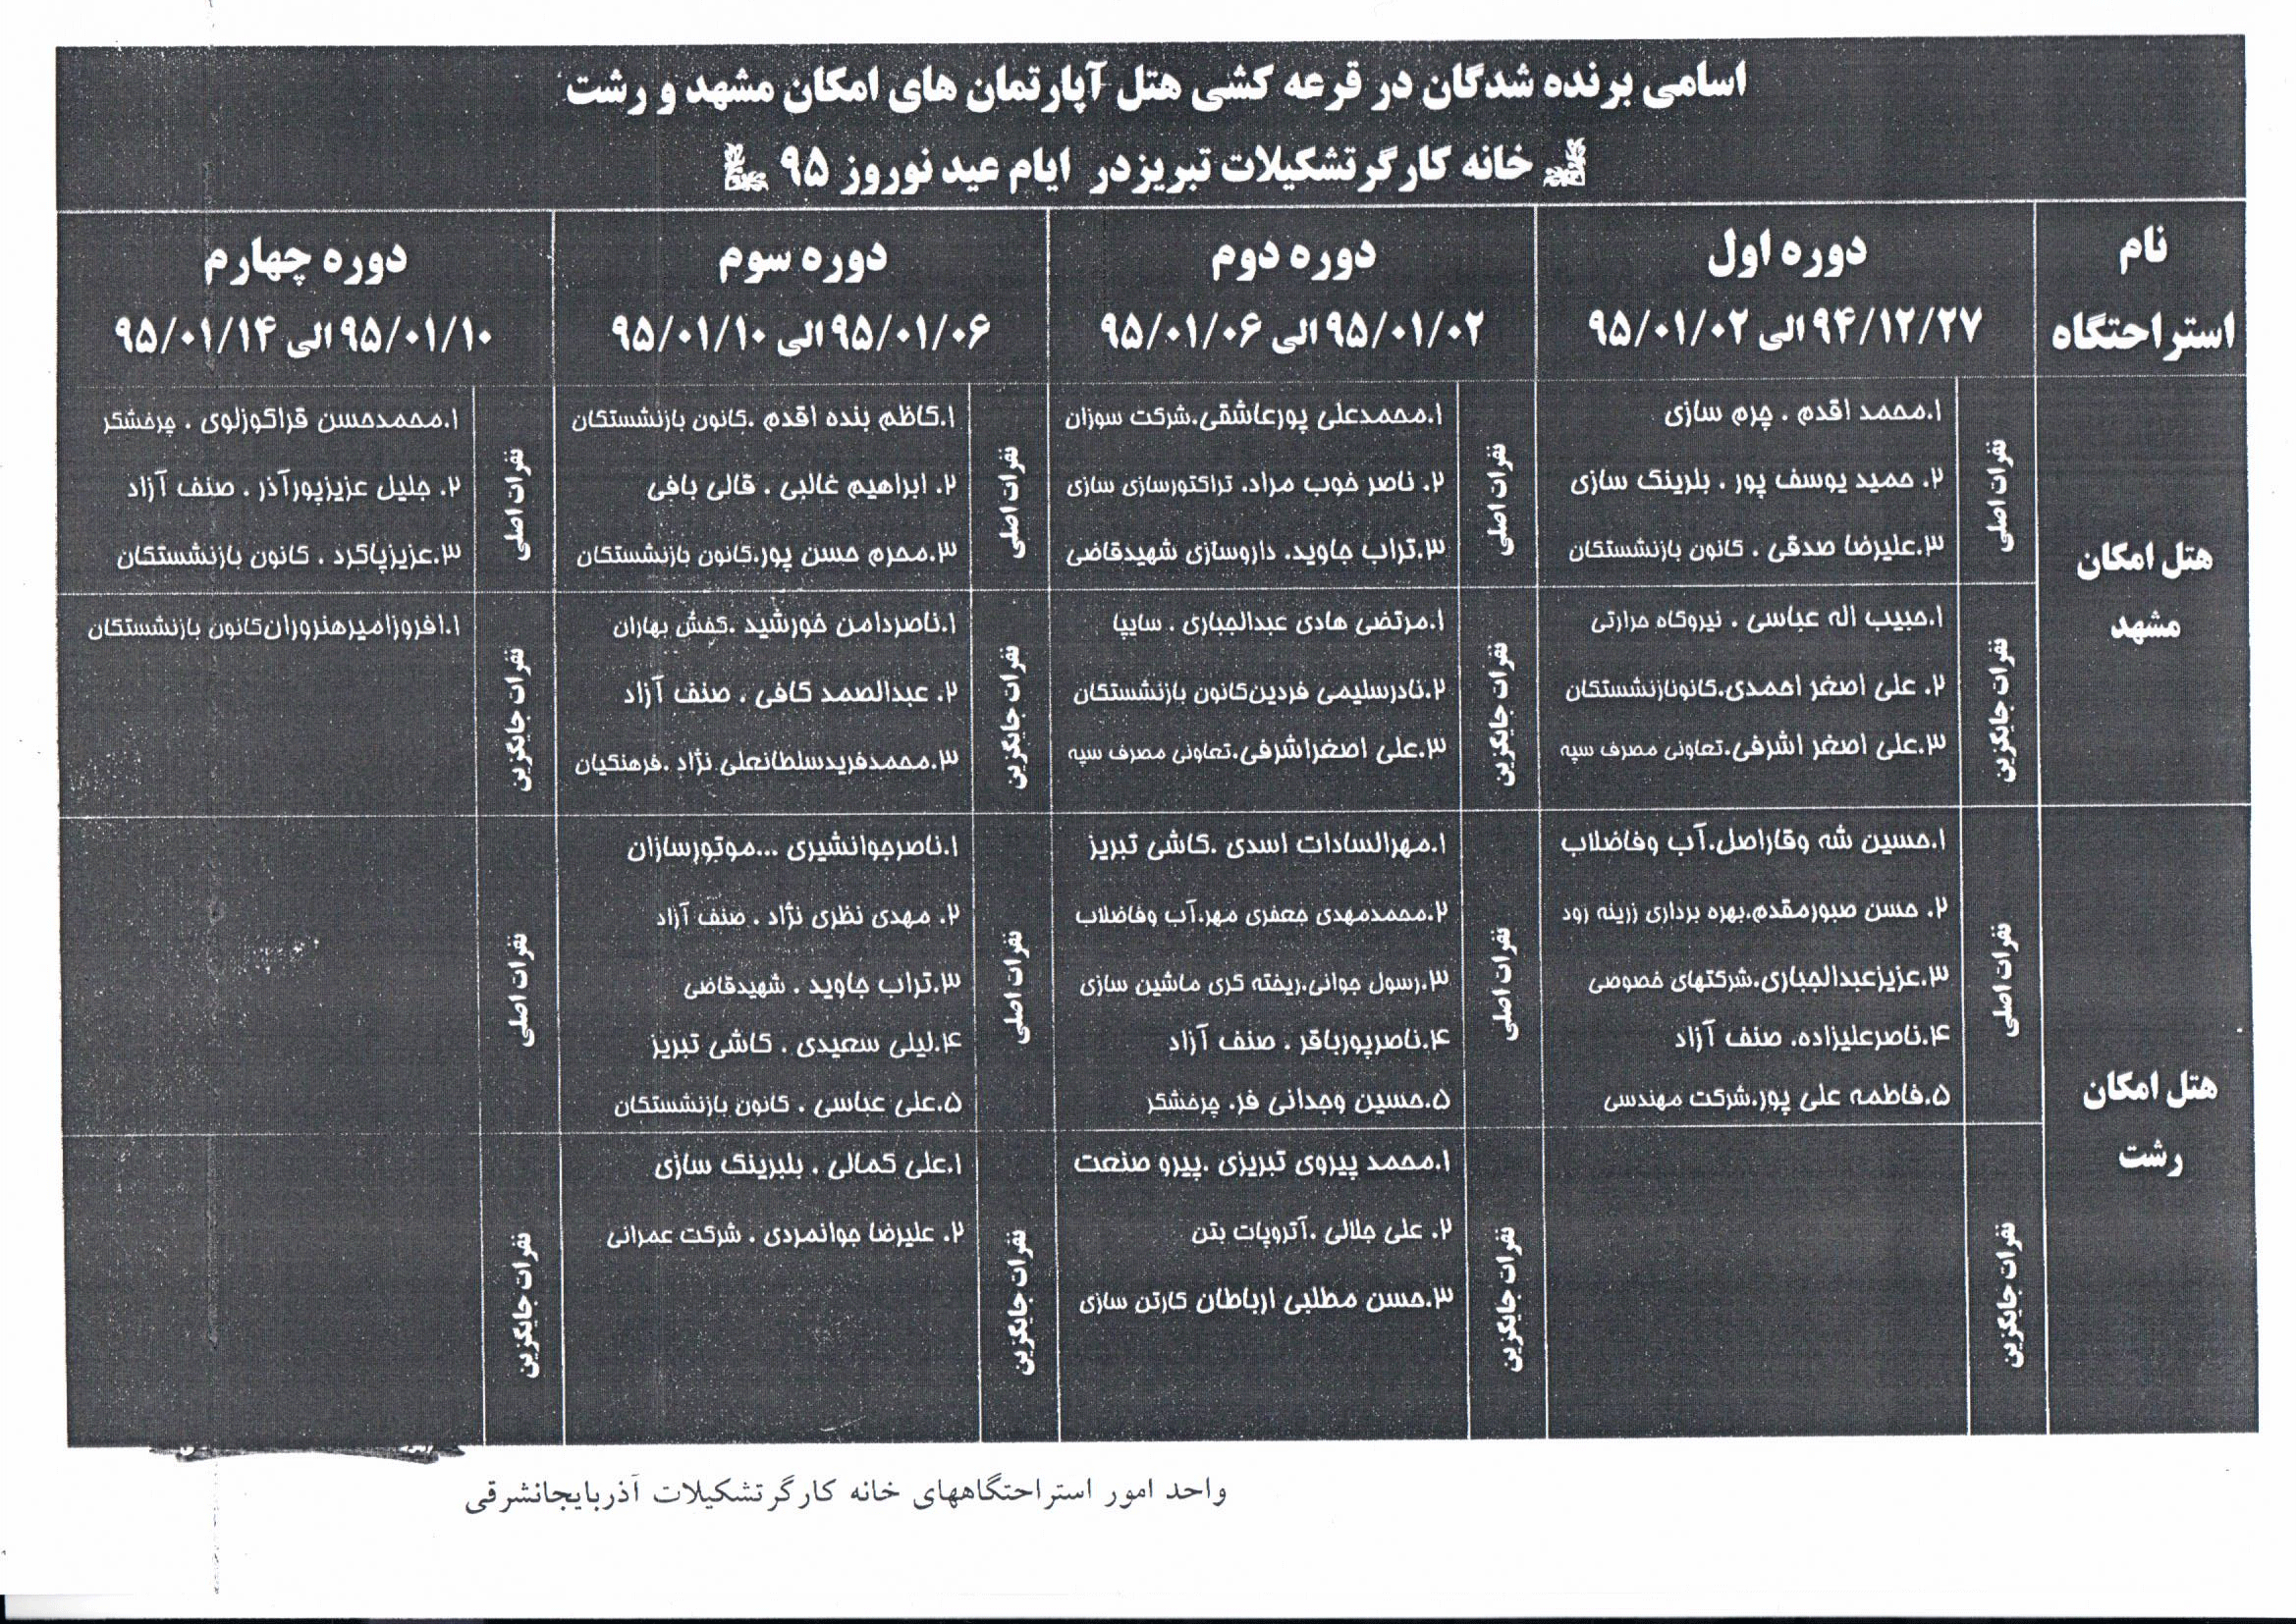 اسامی برنده شدگان در قرعه کشی هتل آپارتمان های امکان مشهد و رشت
خانه کارگر تشکیلات تبریزدر ایام عید نوروز ۹۵
نام استراحتگاه
دوره اول
۹۴/۱۲/۲۷ الی ۹۵/۰۱/۰۲
دوره دوم
۹۵/۰۱/۰۲ الی ۹۵/۰۱/۰۶
دوره سوم
۹۵/۰۱/۰۶ الی ۹۵/۰۱/۱۰
دوره چهارم
۹۵/۰۱/۱۰ الی ۹۵/۰۱/۱۴
هتل امکان
مشهد
نفرات اصلی
۱.محمد اقدم . چرم سازی
۲. حمید یوسف پور . بلرینگ سازی
۳.علیرضا صدقی . کانون بازنشستگان
نفرات اصلی
۱.محمدعلی پورعاشقی.شرکت سوزان
۲. ناصر خوب مراد. تراکتورسازی سازی
۳.تراب جاوید. داروسازی شهیدقاضی
نفرات اصلی
۱.کاظم بنده اقدم .کانون بازنشستگان
۲. ابراهیم غالبی . قالی بافی
۳.محرم حسن پور.کانون بازنشستگان
نفرات اصلی
۱.محمدحسن قراگوزلوی . چرخشگر
۲. جلیل عزیزپورآذر . صنف آزاد
۳.عزیزپاکرد . کانون بازنشستگان
نفرات جایگزین
۱.حبیب اله عباسی . نیروگاه حرارتی
۲. علی اصغر احمدی.کانونازنشستگان
۳.علی اصغر اشرفی.تعاونی مصرف سپه
نفرات جایگزین
۱.مرتضی هادی عبدالجباری . سایپا
۲.نادرسلیمی فردین‌کانون بازنشستگان
۳.علی اصغراشرفی.تعاونی مصرف سپه
نفرات جایگزین
۱.ناصردامن خورشید .کفش بهاران
۲. عبدالصمد کافی . صنف آزاد
۳.محمدفریدسلطانعلی نژاد .فرهنگیان
نفرات جایگزین
۱.افروزامیرهنروران‌کانون بازنشستگان
هتل امکان
رشت
نفرات اصلی
۱.حسین شه وقاراصل.آب وفاضلاب
۲. حسن صبورمقدم.بهره برداری زرینه رود
۳.عزیزعبدالجباری.شرکتهای خصوصی
۴.ناصرعلیزاده. صنف آزاد
۵.فاطمه علی پور.شرکت مهندسی
نفرات اصلی
۱.مهرالسادات اسدی .کاشی تبریز
۲.محمدمهدی جعفری مهر.آب وفاضلاب
۳.رسول جوانی.ریخته گری ماشین سازی
۴.ناصرپورباقر . صنف آزاد
۵.حسین وجدانی فر. چرخشگر
نفرات اصلی
۱.ناصرجوانشیری ...موتورسازان
۲. مهدی نظری نژاد . صنف آزاد
۳.تراب جاوید . شهیدقاضی
۴.لیلی سعیدی . کاشی تبریز
۵.علی عباسی . کانون بازنشستگان
نفرات اصلی
نفرات جایگزین
نفرات جایگزین
۱.محمد پیروی تبریزی .پیرو صنعت
۲. علی جلالی .آتروپات بتن
۳.حسن مطلبی ارباطان کارتن سازی
نفرات جایگزین
۱.علی کمالی . بلبرینگ سازی
۲. علیرضا جوانمردی . شرکت عمرانی
نفرات جایگزین
واحد امور استراحتگاههای خانه کارگر تشکیلات آذربایجانشرقی